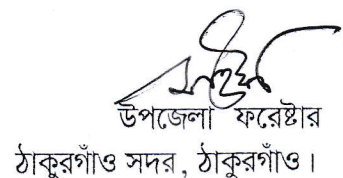 উপজেলা ফরেষ্টার
ঠাকুরগাঁও সদর, ঠাকুরগাঁও।